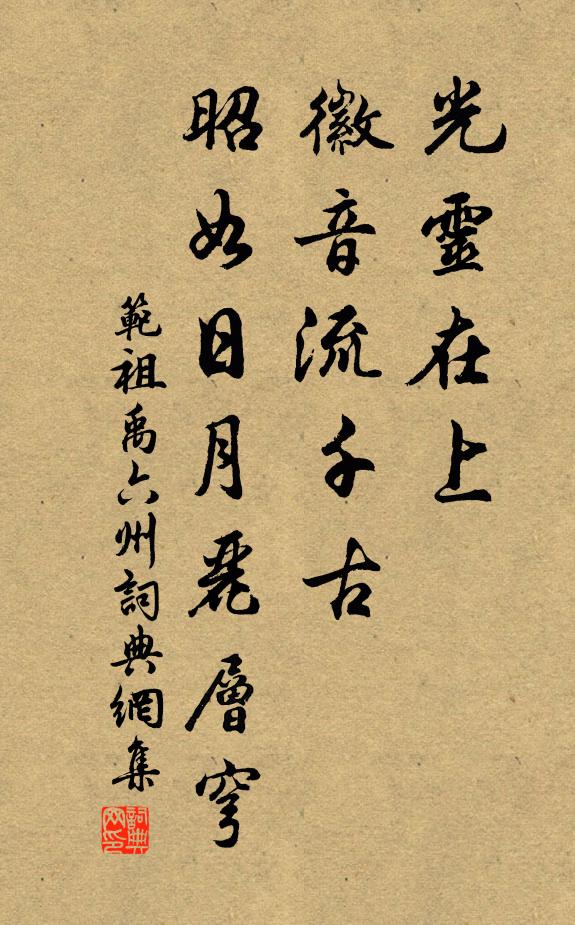 光靈在上
徽音流千古
昭如日月麗層穹
範祖禹六州詞典網集
詞典网印